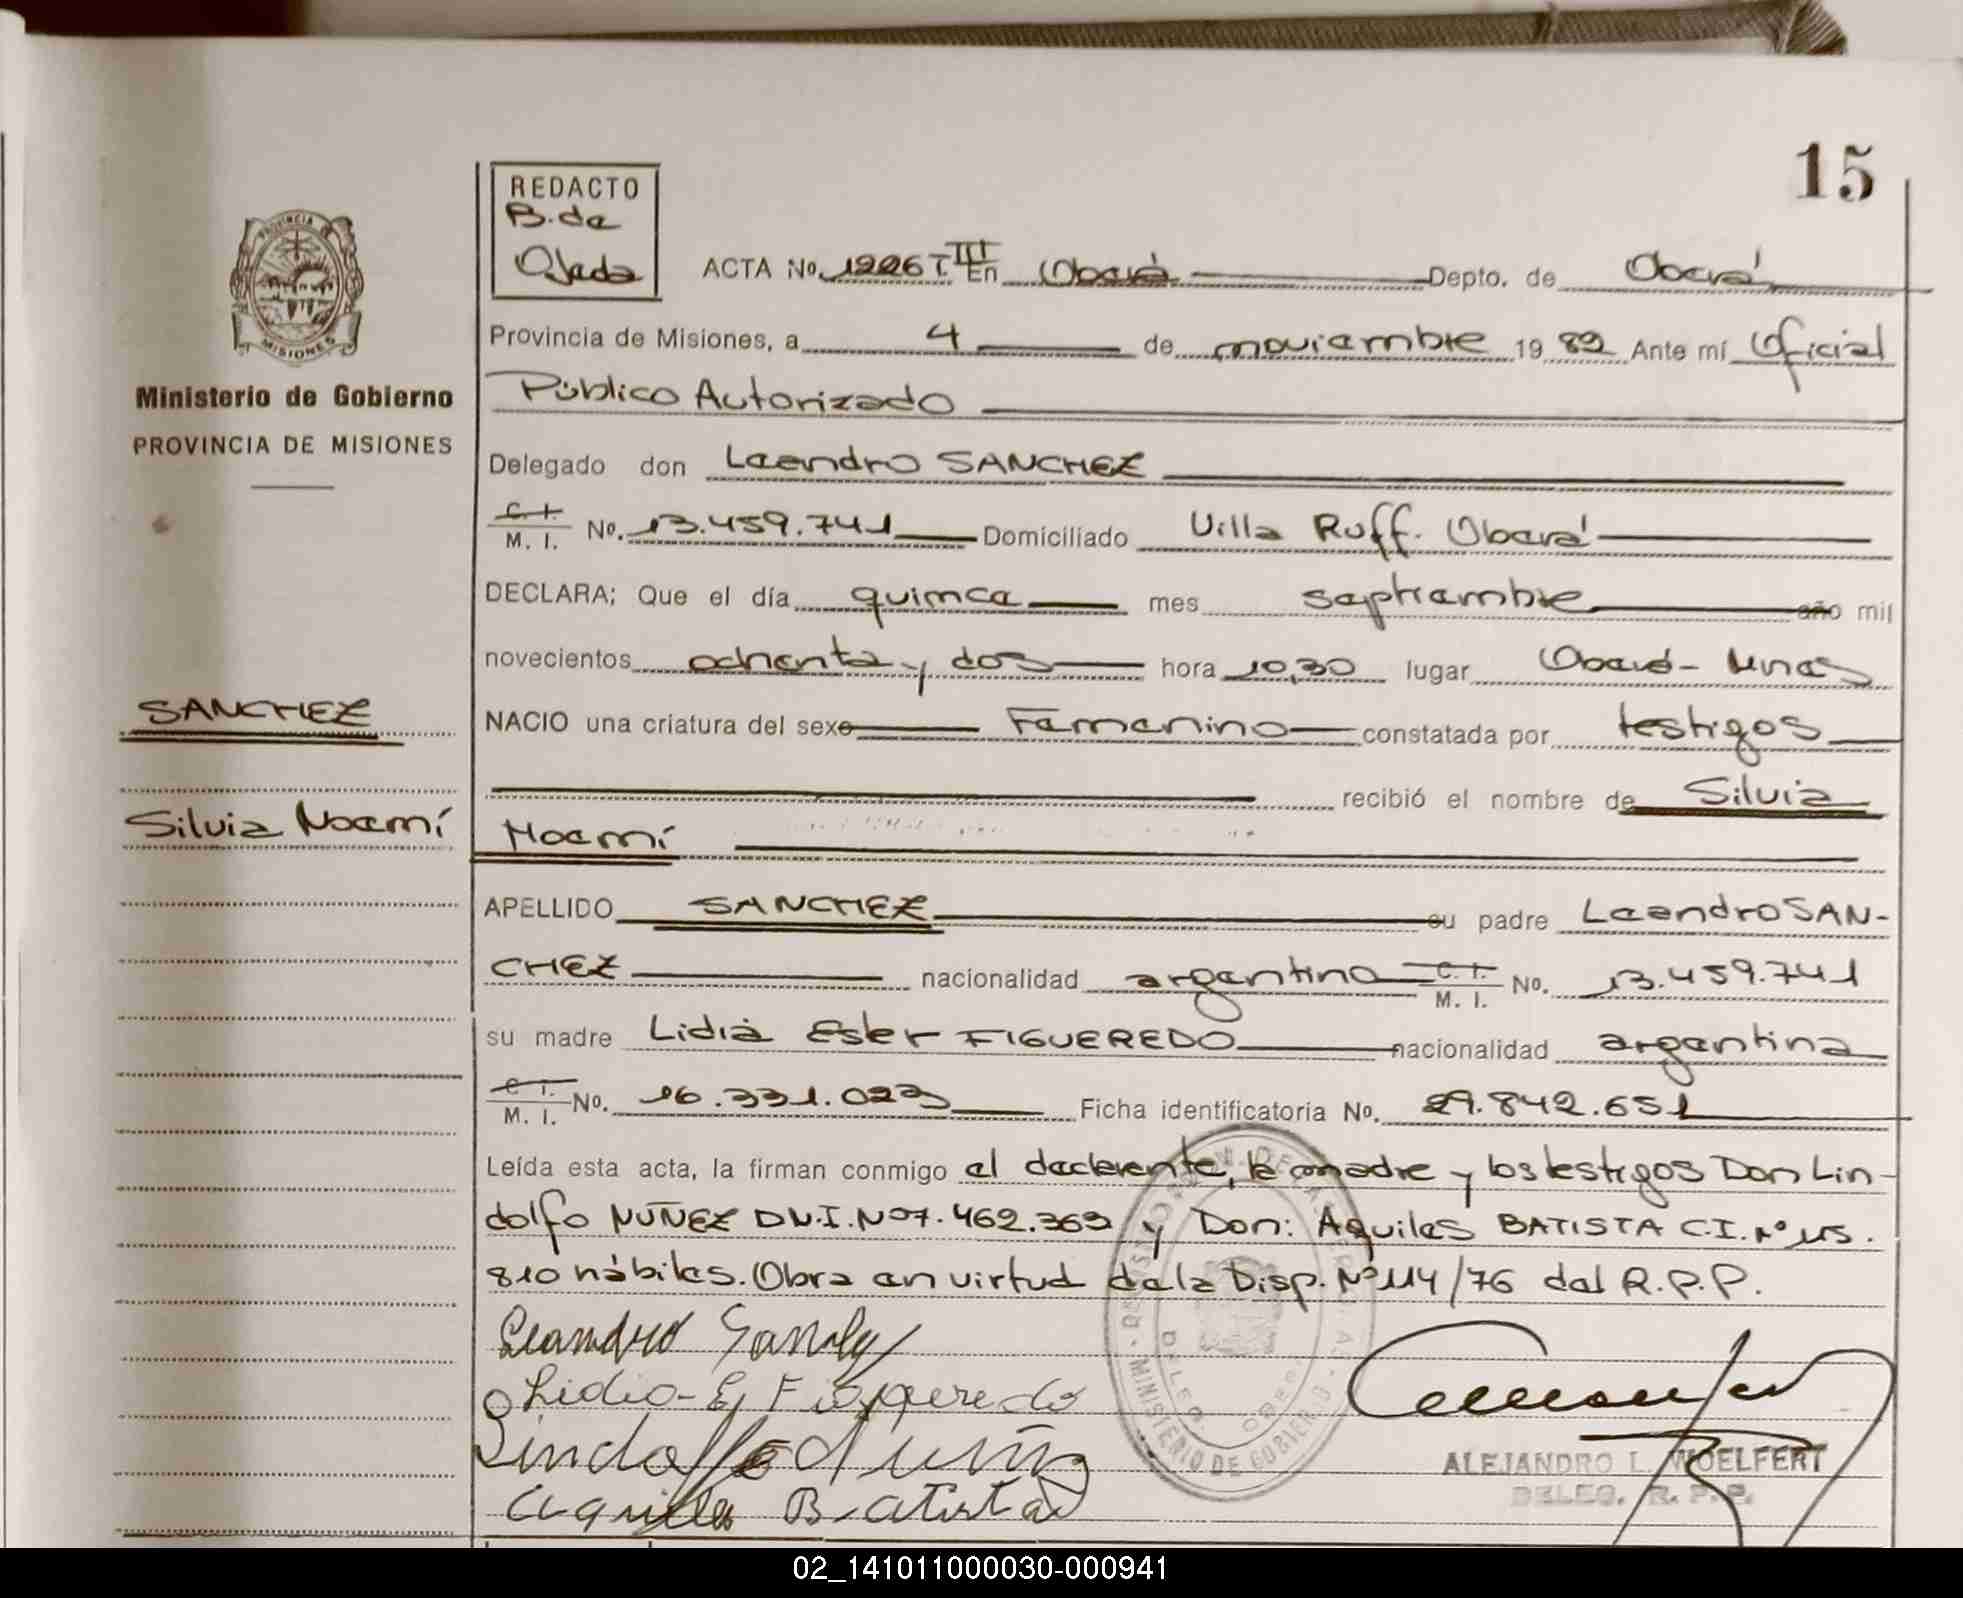 15
REDACTO
B. de
Ojeda
ACTA No. 1226 T. III En Oberá Depto. de Oberá
PROVINCIA DE
MISIONES
Provincia de Misiones, a 4 de noviembre 19 82 Ante mí Oficial
Ministerio de Gobierno
Público Autorizado
PROVINCIA DE MISIONES
Delegado don Leandro SANCHEZ
C. I.
M. I. No. 13.459.741 Domiciliado Villa Ruff. Oberá
DECLARA; Que el día quince mes septiembre año mil
novecientos ochenta y dos hora 10,30 lugar Oberá - Mnes
SANCHEZ
NACIO una criatura del sexo Femenino constatada por testigos
recibió el nombre de Silvia
Silvia Noemí
Noemí
APELLIDO SANCHEZ su padre Leandro SAN-
CHEZ nacionalidad argentino C. I.
M. I. No. 13.459.741
su madre Lidia Ester FIGUEREDO nacionalidad argentina
C. I.
M. I. No. 16.331.023 Ficha identificatoria No. 29.842.651
Leída esta acta, la firman conmigo el declarente, la madre y los testigos Don Lin-
dolfo NUÑEZ D.N.I. Nº 7.462.369 y Don: Aquiles BATISTA C.I. Nº 115.
810 hábiles. Obra en virtud de la Disp. Nº 114/76 del R.P.P.
Leandro Sanchez
Lidia E. Figueredo
Lindolfo Nuñez
Aquiles Batista
MINISTERIO DE GOBIERNO
ALEJANDRO L. WOELFERT
DELEG. R. P. P.
02_141011000030-000941